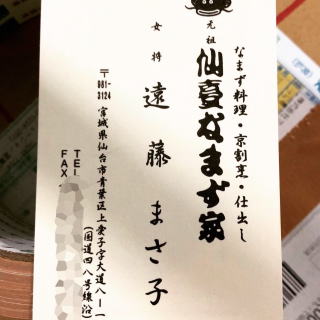 なまず料理・京割烹・仕出し
元祖
仙臺なまず家
女将
遠藤 まさ子
〒981-3124
宮城県仙台市青葉区上愛子字大道八ー一
(国道四八号線沿)
TEL
FAX